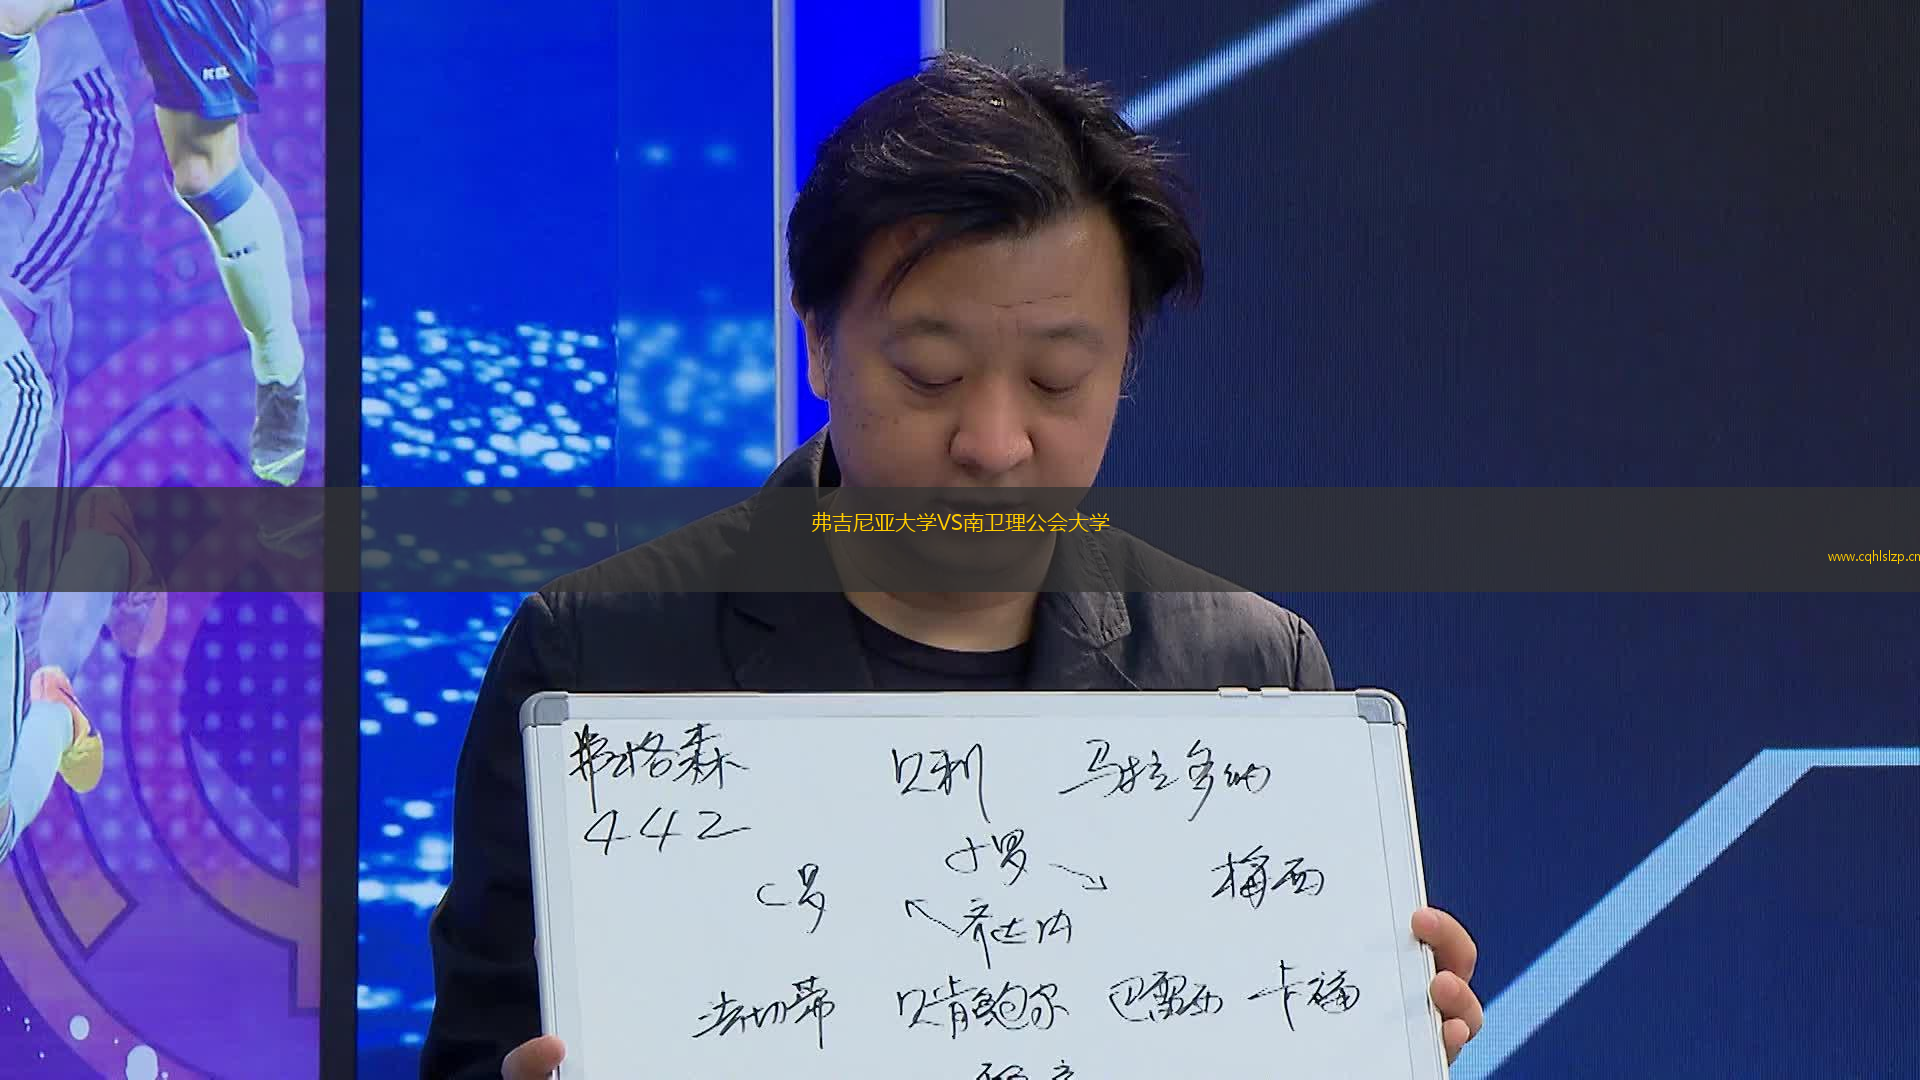 弗吉尼亚大学VS南卫理公会大学
www.cqhlslzp.cn
弗格森 贝利 马拉多纳
442
小罗
C罗 梅西
齐达内
法切蒂 贝肯鲍尔 巴雷西 卡福